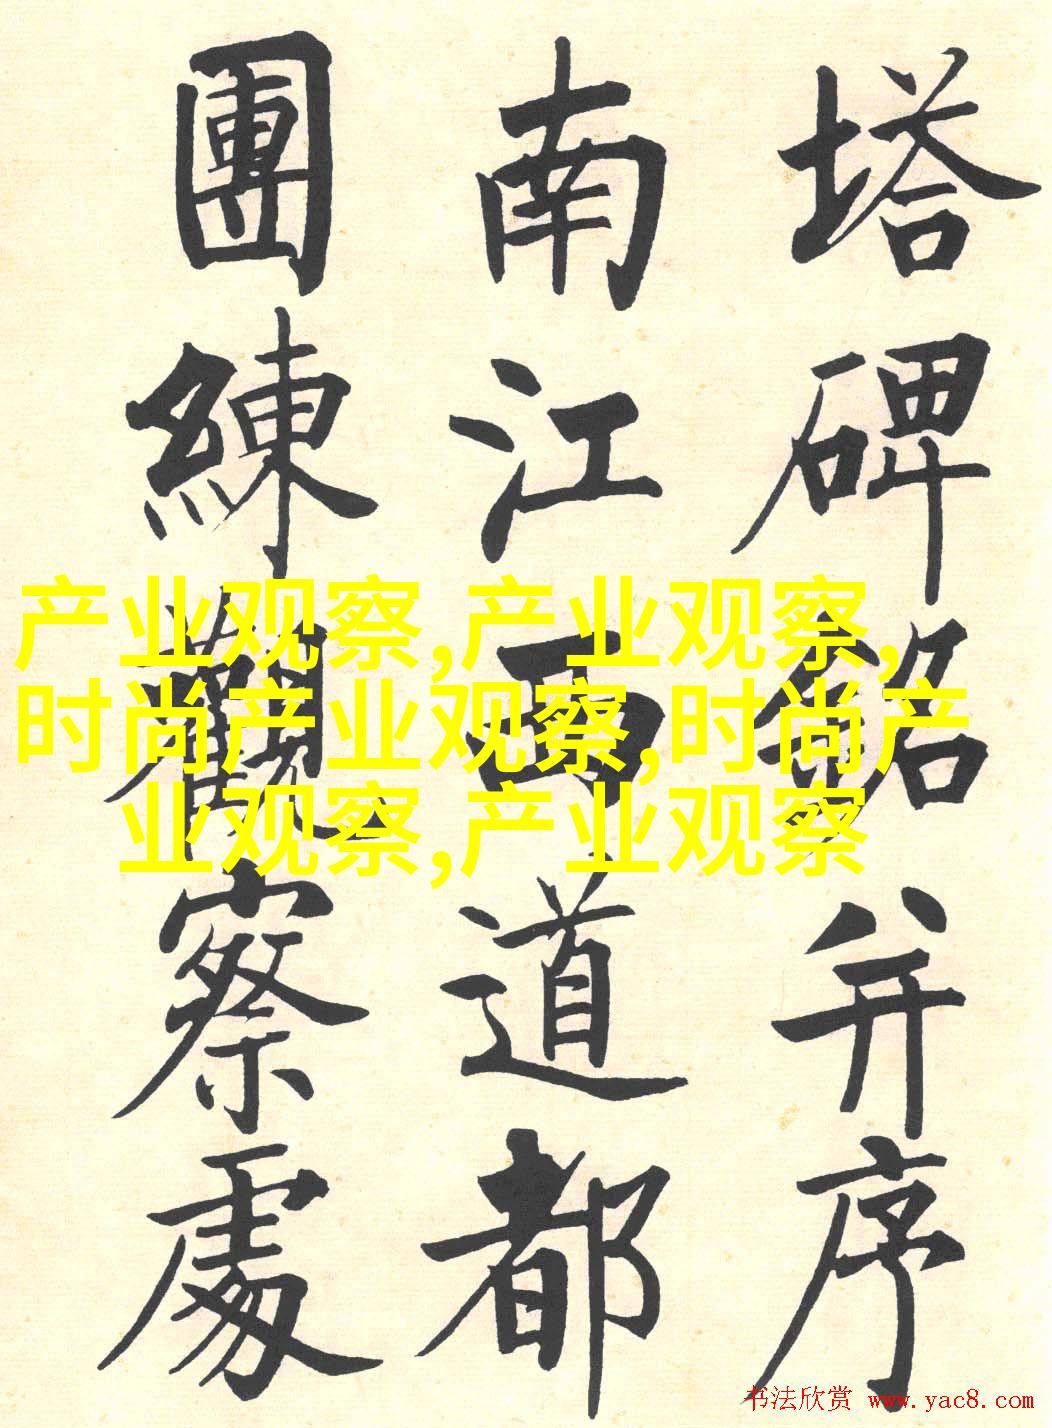 塔碑銘并序
南江西道都
團練觀察處
产业观察,产业观察,
时尚产业观察,时尚产
业观察,产业观察
书法欣赏 www.yac8.com